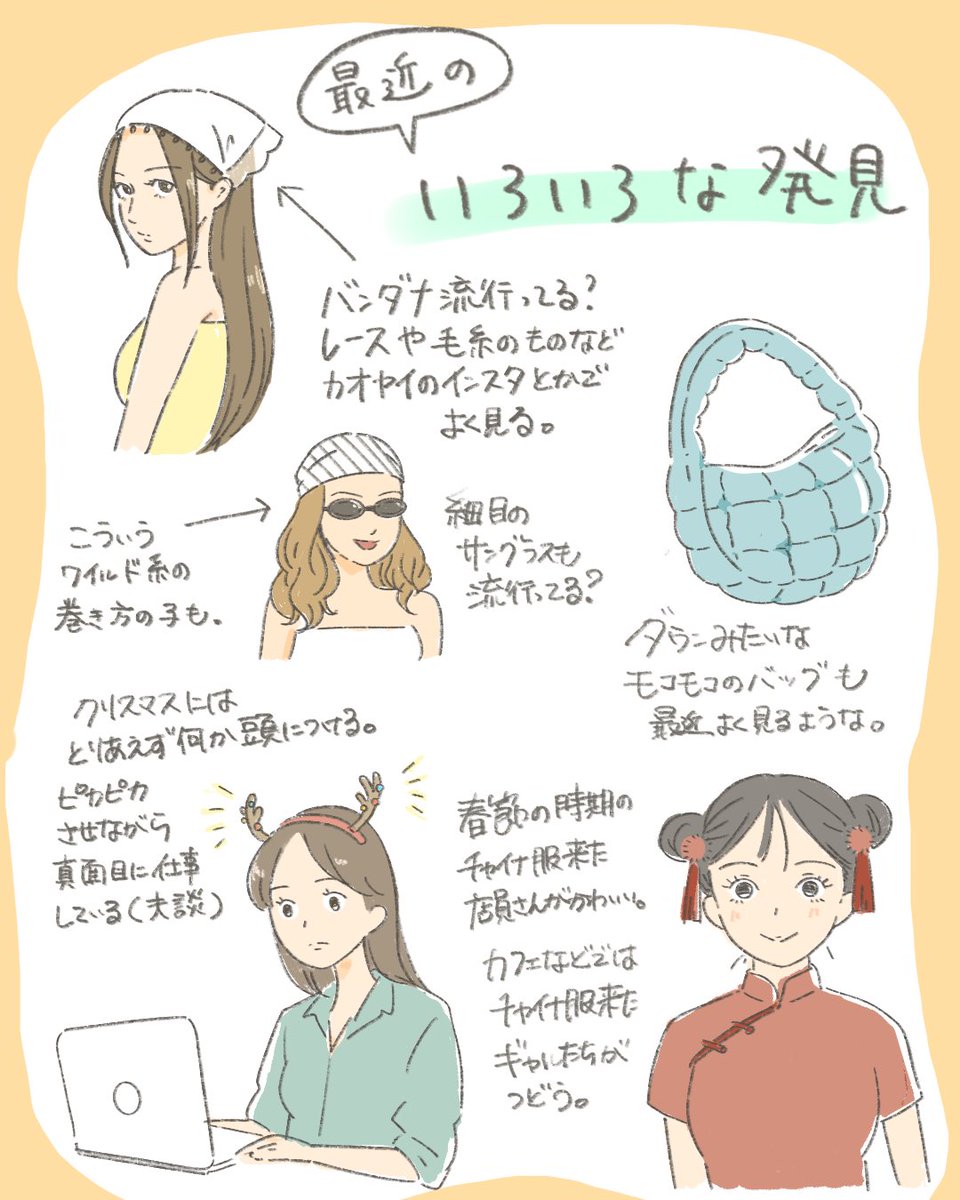 最近の
いろいろな発見
バンダナ流行ってる？
レースや毛糸のものなど
カオヤイのインスタとかで
よく見る。
こういう
ワイルド系の
巻き方の子も。
細目の
サングラスも
流行ってる？
ダウンみたいな
モコモコのバッグも
最近よく見るような。
クリスマスには
とりあえず何か頭につける。
ピカピカ
させながら
真面目に仕事
している（夫談）
春節の時期の
チャイナ服来た
店員さんがかわいい。
カフェなどでは
チャイナ服来た
ギャルたちが
つどう。